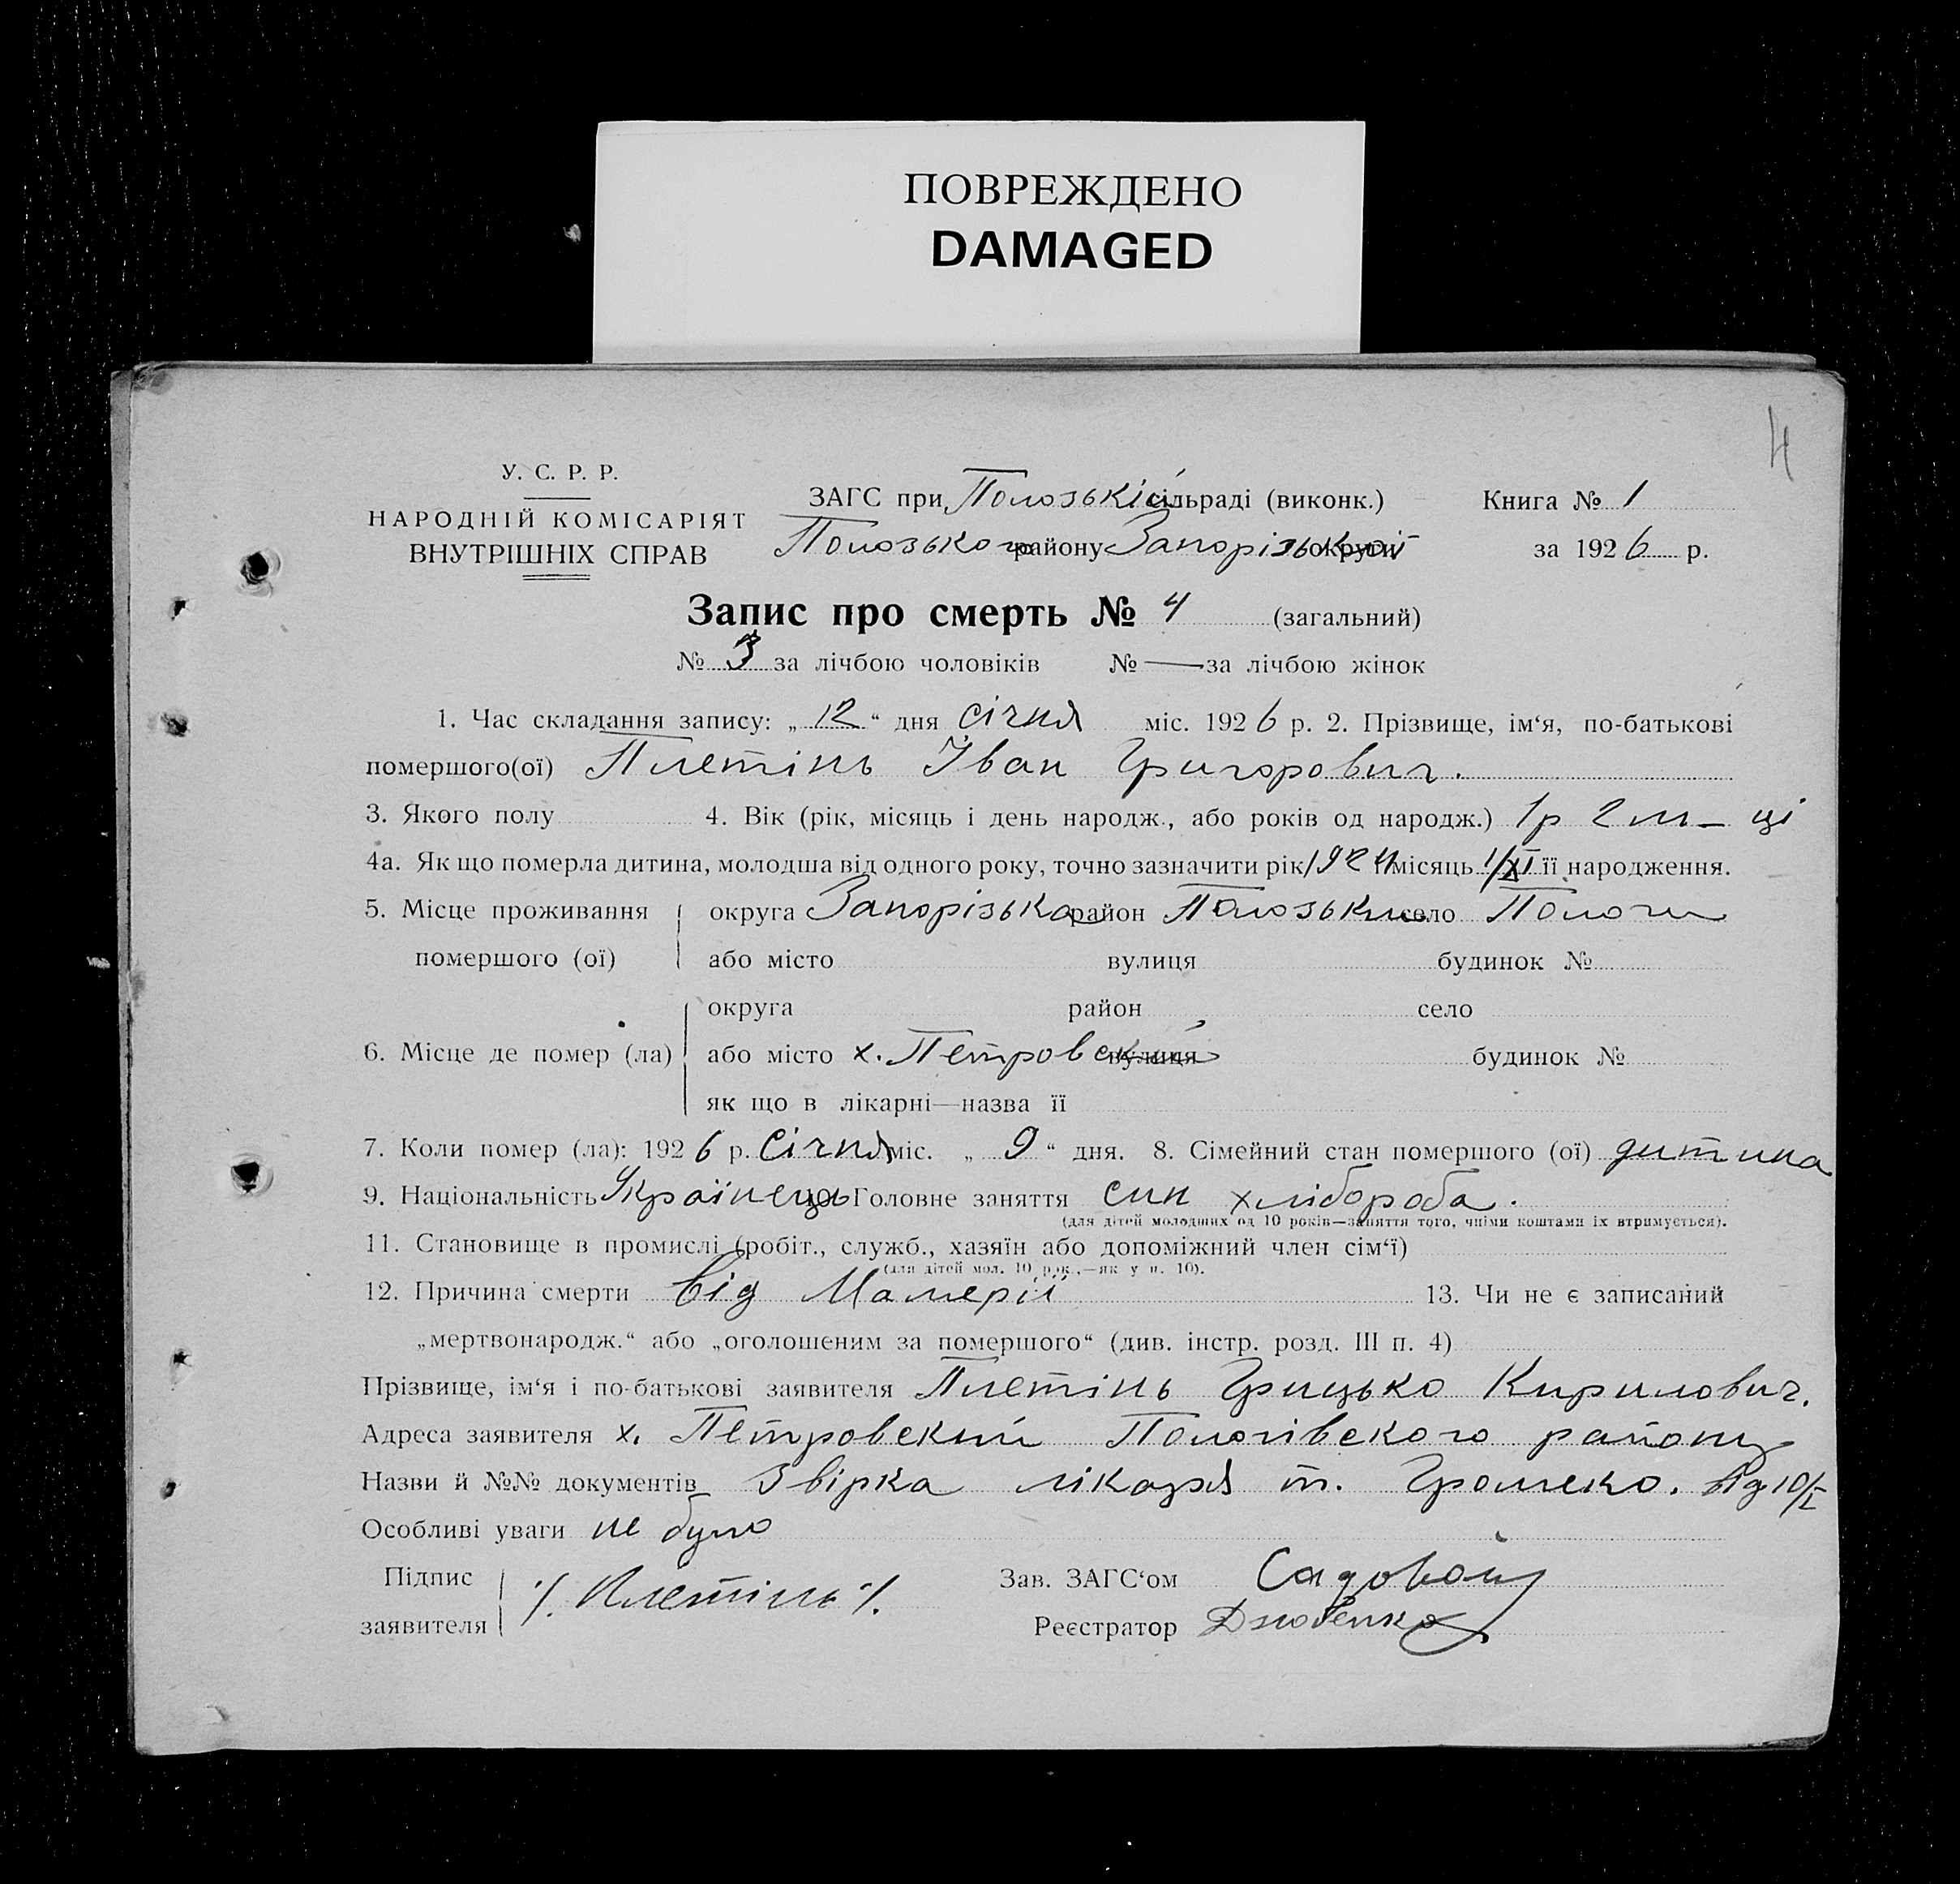 ПОВРЕЖДЕНО
DAMAGED
4
У. С. Р. Р.
НАРОДНІЙ КОМІСАРІЯТ
ВНУТРІШНІХ СПРАВ
ЗАГС при Полозькій сільраді (виконк.) Книга № 1
Полозького району Запорізької округи за 1926 р.
Запис про смерть № 4 (загальний)
№ 3 за лічбою чоловіків № — за лічбою жінок
1. Час складання запису: „12“ дня січня міс. 1926 р. 2. Прізвище, ім'я, по-батькові
помершого(ої) Плетінь Іван Григорович.
3. Якого полу 4. Вік (рік, місяць і день народж., або років од народж.) 1р 2 м-ці
4а. Як що померла дитина, молодша від одного року, точно зазначити рік 1924 місяць 1/XI її народження.
5. Місце проживання округа Запорізька район Полозький село Пологи
помершого (ої) або місто вулиця будинок №
округа район село
6. Місце де помер (ла) або місто х. Петровский вулиця будинок №
як що в лікарні—назва її
7. Коли помер (ла): 1926 р. Січня міс. „9“ дня. 8. Сімейний стан помершого (ої) дитина
9. Національність Українець 10. Головне заняття син хлібороба.
(для дітей молодших од 10 років—заняття того, чиїми коштами їх втримується).
11. Становище в промислі (робіт., служб., хазяїн або допоміжний член сім'ї)
(для дітей мол. 10 рок.,—як у п. 10).
12. Причина смерти від Малерії 13. Чи не є записаний
„мертвонародж.“ або „оголошеним за помершого“ (див. інстр. розд. III п. 4)
Прізвище, ім'я і по-батькові заявителя Плетінь Грицько Кирилович.
Адреса заявителя х. Петровский Пологівского району
Назви й №№ документів Звірка лікаря т. Громеко. від 10/I
Особливі уваги не було
Підпис
заявителя /. Плетінь /.
Зав. ЗАГС'ом Садовой
Реєстратор